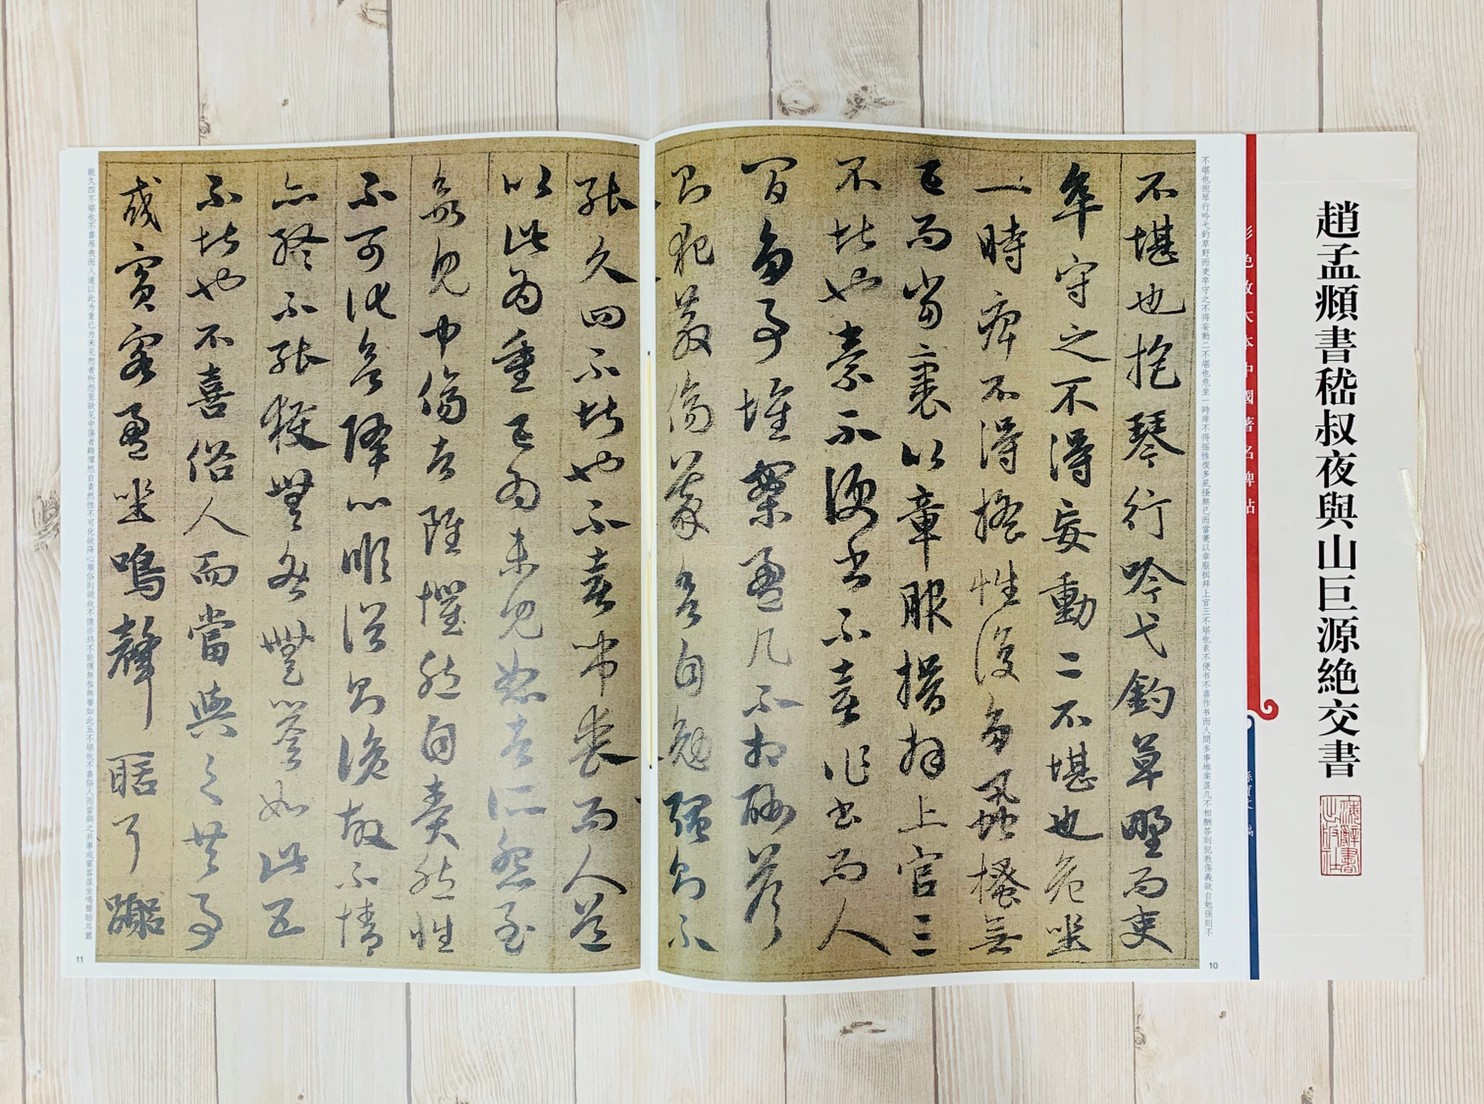 趙孟頫書嵇叔夜與山巨源絕交書
彩色放大本中國著名碑帖
孫寶文 編
不堪也抱琴行吟弋釣草野而吏卒守之不得妄動二不堪也危坐一時痺不得搖性復多虱搔無已而當裹以章服揖拜上官三不堪也素不便书不喜作书而人間多事堆案盈几不相酬答則犯教傷義欲自勉强則不
不堪也抱琴行吟弋釣草野而吏
卒守之不得妄動二不堪也危坐
一時痺不得搖性復多蝨搔無
已而當裹以章服揖拜上官三
不堪也素不便書不喜作書而人
間多事堆案盈几不相酬答
則犯教傷義欲自勉強則不
10
能久四不堪也不喜吊喪而人道
以此為重已為未見恕者所怨至
欲見中傷者雖懼然自責然性
不可化欲降心順俗則詭故不情
亦終不能獲無咎無譽如此五
不堪也不喜俗人而當與之共事
或賓客盈坐鳴聲聒耳囂
能久四不堪也不喜吊喪而人道以此為重已為未見恕者所怨至欲見中傷者雖懼然自責然性不可化欲降心順俗則詭故不情亦終不能獲無咎無譽如此五不堪也不喜俗人而當與之共事或賓客盈坐鳴聲聒耳囂
11